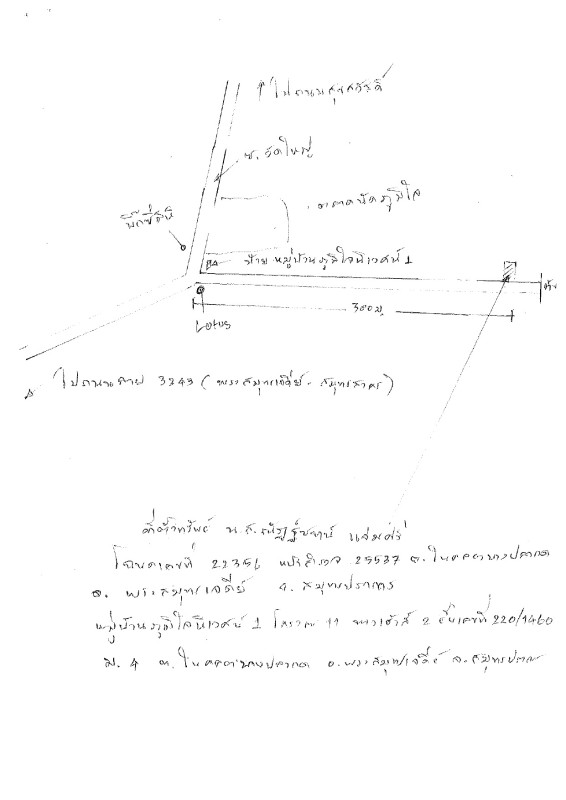 ไปถนนสุขสวัสดิ์
ซ. วัดใหญ่
ตลาดนัดภูมิใจ
บิ๊กซีมินิ
ป้าย หมู่บ้านภูมิใจนิเวศน์ 1
300 ม.
Lotus
ไปถนนสาย 3243 (พระสมุทรเจดีย์ - สมุทรสาคร)
ที่ตั้งทรัพย์ น.ส.
โฉนดเลขที่ 22356 หน้าสำรวจ 25537 ต. ในคลองบางปลากด
อ. พระสมุทรเจดีย์ จ. สมุทรปราการ
หมู่บ้านภูมิใจนิเวศน์ 1 โครงการ 11 ทาวเฮ้าส์ 2 ชั้นเลขที่ 220/1460
ม. 4 ต. ในคลองบางปลากด อ. พระสมุทรเจดีย์ จ. สมุทรปราการ